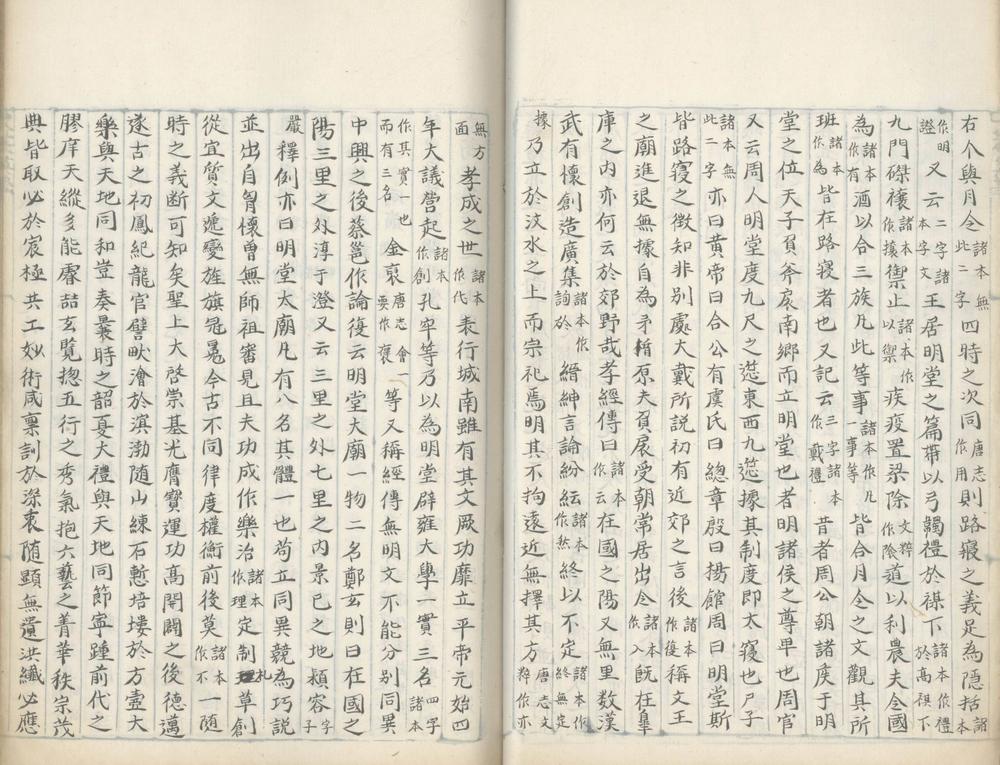 右个與月令諸本無此二字四時之次同唐志作用則路寢之義足為隱括諸本
作明證又云二字諸本字文王居明堂之篇帶以弓韣禮於禖下諸本作禮於高禖下
九門磔禳諸本作攘禦止諸本作以禦疾疫置梁除文粹作陰道以利農夫令國
為諸本作有酒以合三族凡此等事諸本作凡一事等皆合月令之文觀其所
班諸本作為皆在路寢者也又記云三字諸本作戴禮昔者周公朝諸侯于明
堂之位天子負斧扆南鄉而立明堂也者明諸侯之尊卑也周官
又云周人明堂度九尺之筵東西九筵據其制度即太寢也尸子
諸本無此二字亦曰黃帝曰合公有虞氏曰總章殷曰揚館周曰明堂斯
皆路寢之徴知非別處大戴所說初有近郊之言後諸本作復稱文王
之廟進退無據自為矛楯原夫負扆受朝常居出令諸本入既在臯
庫之內亦何云於郊野哉孝經傳曰諸本作云在國之陽又無里数漢
武有懷創造廣集諸本作詢於縉紳言論紛紜諸本作紛然終以不定諸本作終無定
據乃立於汶水之上而宗祀焉明其不拘遠近無擇其方唐志文粹作亦
無方面孝成之世諸本作代表行城南雖有其文厥功靡立平帝元始四
年大議營起諸本作創孔牢等乃以為明堂辟雍大學一實三名四字諸本
作其實一也而有三名金裒唐志會一要作褒等又稱經傳無明文不能分别同異
中興之後蔡邕作論復云明堂大廟一物二名鄭玄則曰在國之
陽三里之外淳于澄又云三里之外七里之內景已之地穎容字子
嚴釋例亦曰明堂太廟凡有八名其體一也苟立同異競為巧説
並出自胷懷曽無師祖審見且夫功成作樂治諸本作理定制札草創
從宜質文遞變旌旗冠冕今古不同律度權衡前後莫諸本作不一随
時之義断可知矣聖上大啓崇基光膺寶運功髙開闢之後德邁
遂古之初鳳紀龍官譬畎澮於溟渤随山練石慙培塿於方壼大
樂與天地同和豈奏曩時之韶戛大禮與天地同節寧踵前代之
膠庠天縱多能膺喆玄覽揔五行之秀氣抱六藝之菁華秩宗茂
典皆取必於宸極共工妙術咸稟訓於深衷随顕無遺洪纖必應